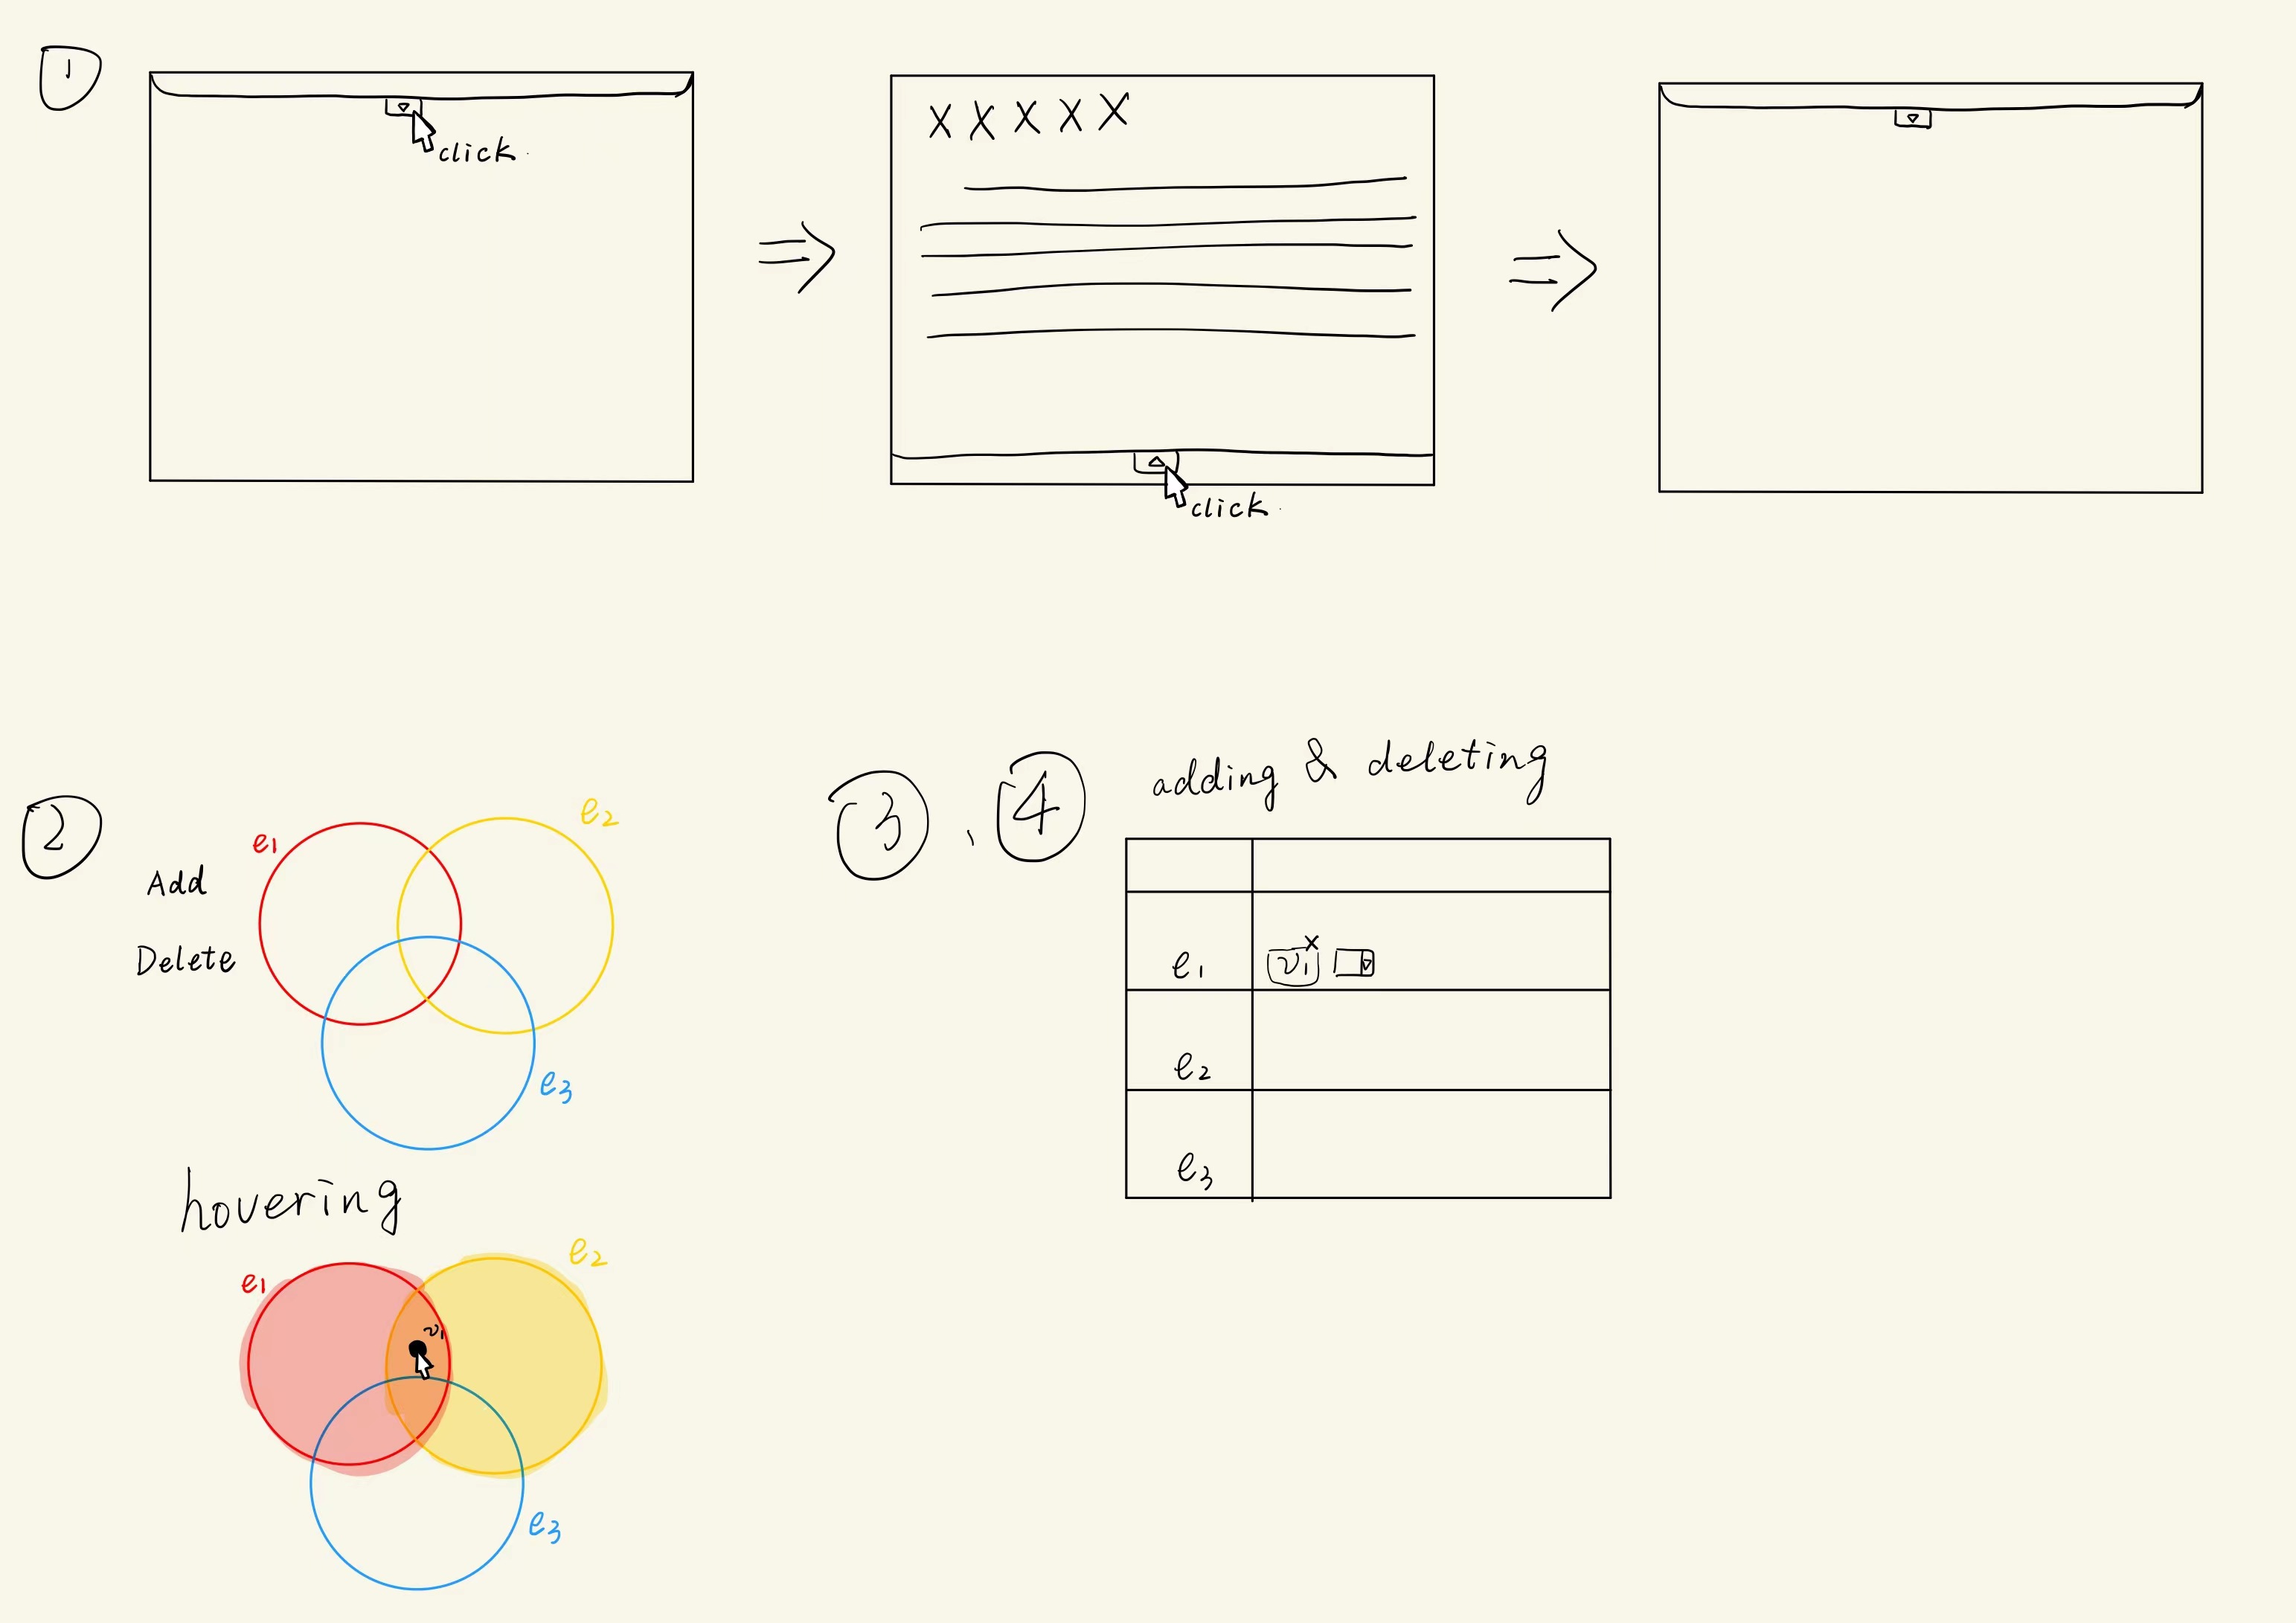 1
click.
X X X X X
click.
2
Add
Delete
e1
e2
e3
hovering
e1
e2
v1
e3
3、4
adding & deleting
e1 v1 x
e2
e3